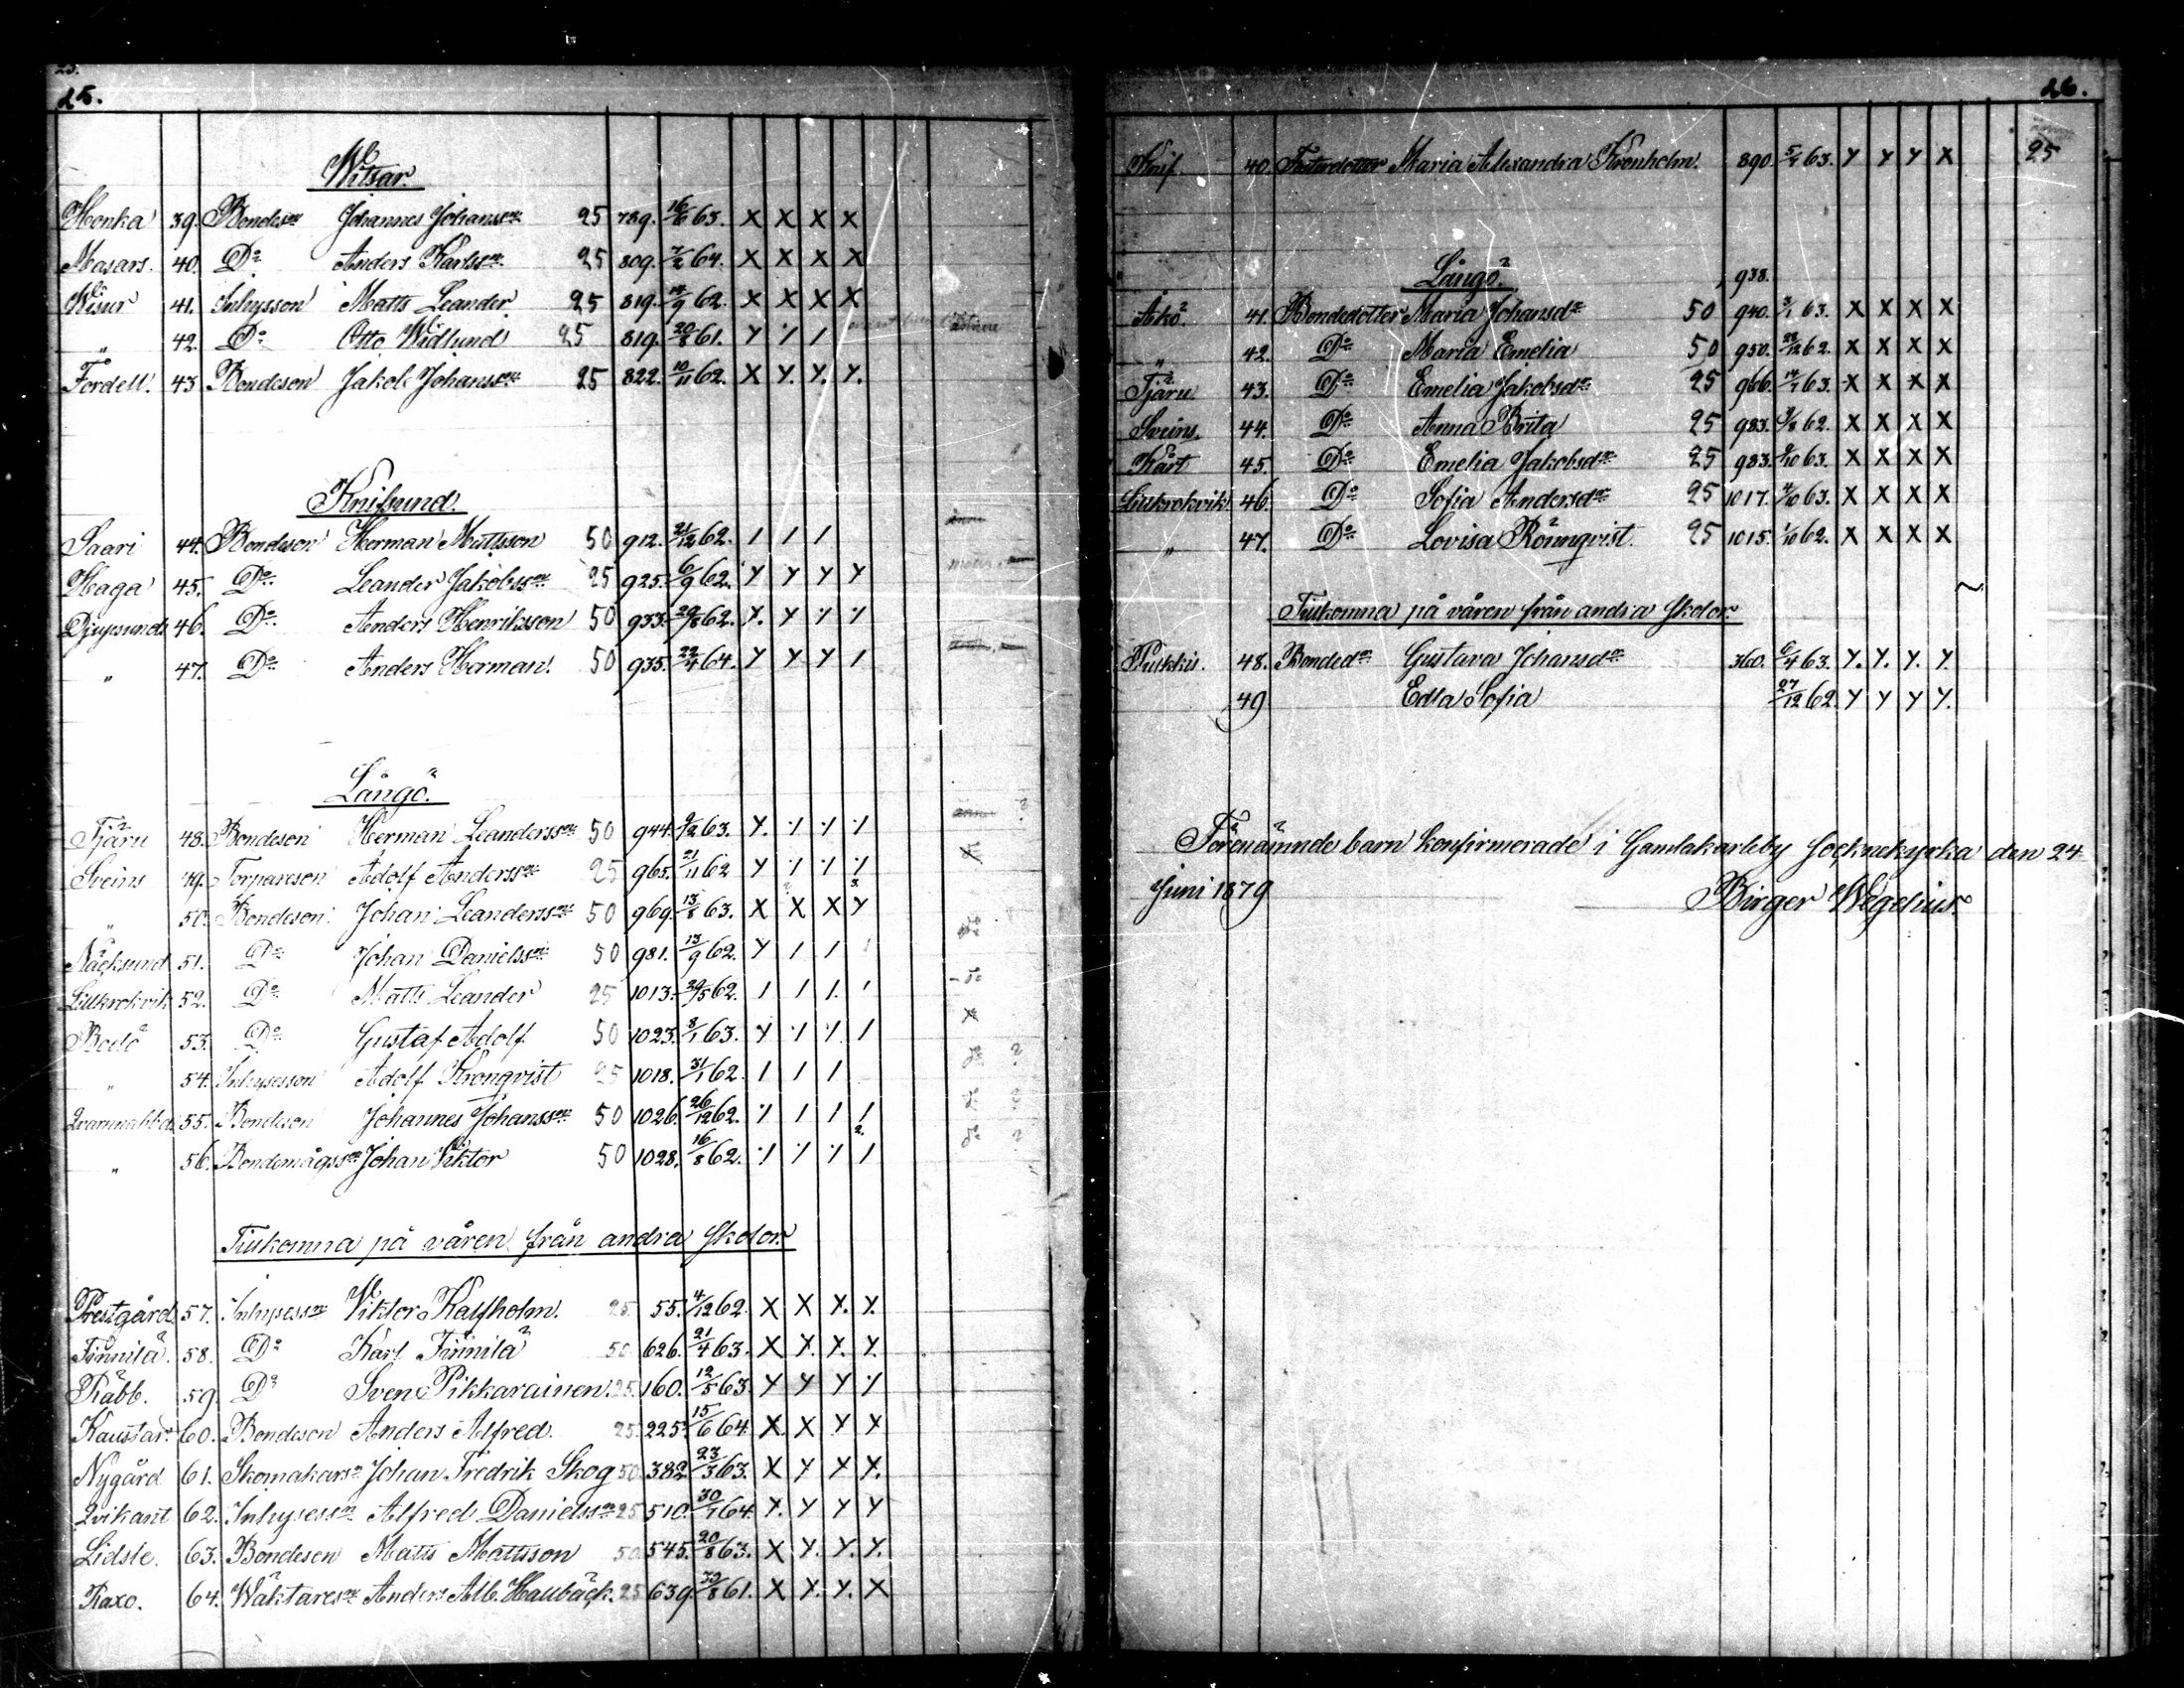 25.
Witsar.
Honka 39. Bondeson Johannes Johansson 25 789. 16/6 63. X X X X
Masars. 40. Do Anders Karlsson 25 809. 7/2 64. X X X X
Wisur 41. Inhysson Matts Leander. 25 819. 14/9 62. X X X X
" 42. Do Otto Widlund 25 819. 20/8 61. Y ٪ /
Fordell. 43 Bondeson Jakob Johansson 25 822. 10/11 62. X Y. Y. Y.
Knifsund.
Saari 44. Bondeson Herman Mattsson 50 912. 21/12 62. / / /
Haga 45. Do Leander Jakobsson 25 925. 6/9 62. Y Y Y Y
Djupsunds 46. Do Anders Henriksson 50 933. 29/8 62. Y. Y
" 47. Do Anders Herman. 50 935. 22/4 64. Y Y Y /
Långö.
Tjäru 48. Bondeson Herman Leandersson 50 944. 9/2 63. Y.
Sveins 49. Torpareson Adolf Andersson 25 965. 21/11 62 Y
" 50. Bondeson Johan Leandersson 50 969. 13/8 63. X X X Y
Näcksund 51. Do Johan Danielsson 50 981. 13/9 62. Y / /
Lillkrokvik 52. Do Matts Leander 25 1013. 29/5 62. / / /. /
Bodö 53. Do Gustaf Adolf 50 1023. 8/1 63. Y
" 54. Inhyseson Adolf Kronqvist 25 1018. 31/1 62. / / /
Qvarnabba 55. Bondeson Johannes Johansson 50 1026. 26/12 62. / / /
" 56. Bondemågsson Johan Viktor 50 1028. 16/8 62.
Tillkomna på våren från andra Skolor.
Prestgård 57. Inhysesson Viktor Kalfholm. 25 55. 4/12 62. X X Y. Y.
Finnilä. 58. Do Karl Finnilä 50 626. 21/4 63. X Y. Y. Y.
Råbb. 59. Do Sven Pikkarainen. 25. 160. 12/5 63 Y Y Y
Kaustar. 60. Bondeson Anders Alfred. 25. 225. 15/6 64. X X Y Y
Nygård 61. Skomakarsn Johan Fredrik Skog 50. 382. 23/3 63. X Y Y Y.
Qvikant 62. Inhysessn Alfred Danielsson 25 510. 30/1 64. Y. Y Y Y
Lidste. 63. Bondeson Matts Mattsson 50 545. 20/8 63. X Y. Y. Y.
Raxo. 64. Wäktaresn Anders Alb. Haubäck. 25 639. 30/8 61. X Y. Y. X
26.
Knif. 40. Fosterdotter Maria Alexandra Kronholm. 890. 5/1 63. Y Y Y X 25
Långö. 938.
Åkö. 41. Bondedotter Maria Johansdr 50 940. 3/1 63. X X X X
" 42. Do Maria Emelia 50 950. 22/12 62. X X X X
Tjäru 43. Do Emelia Jakobsdr 25 966. 14/1 63. X X X X
Sveins. 44. Do Anna Brita 25 983. 3/8 62. X X X X
Kårt 45. Do Emelia Jakobsdr 25 983. 9/10 63. X X X X
Lillkrokvik 46. Do Sofia Andersdr 25 1017. 4/10 63. X X X X
" 47. Do Lovisa Rönnqvist. 25 1015. 1/10 62. X X X X
Tillkomna på våren från andra Skolor.
Puskkis. 48. Bondedr Gustava Johansdr 360. 6/4 63. Y. Y. Y. Y.
49 Edla Sofia 27/12 62. Y Y Y Y.
Förenämnde barn konfirmerade i Gamlakarleby Socknekyrka den 24
Juni 1879
Birger Wegelius.